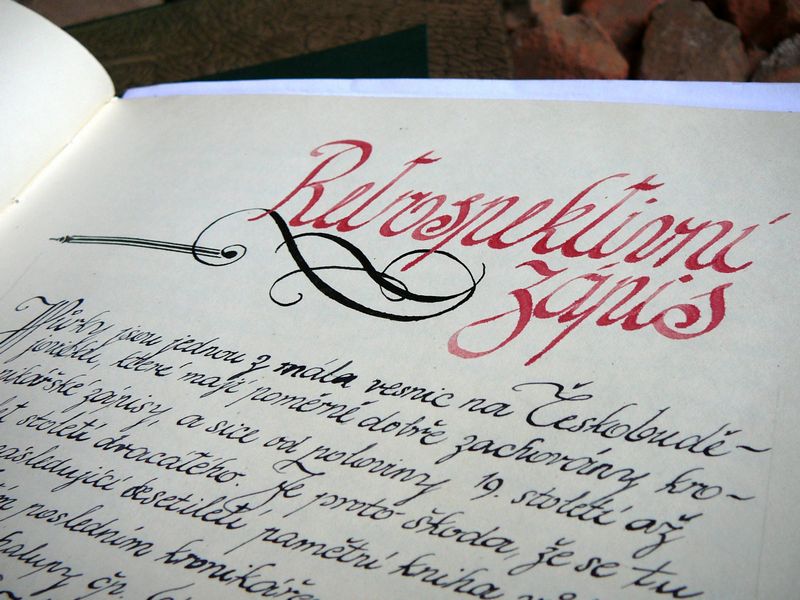 Retrospektivní
zápis
jsou jednou z mála vesnic na Českobudě-
které mají poměrně dobře zachovány kro-
nikářské zápisy, a sice od poloviny 19. století až
století dvacátého. Je proto škoda, že se tu
následující desetiletí pamětní kniha
posledním kronikáře
chalupy čp.